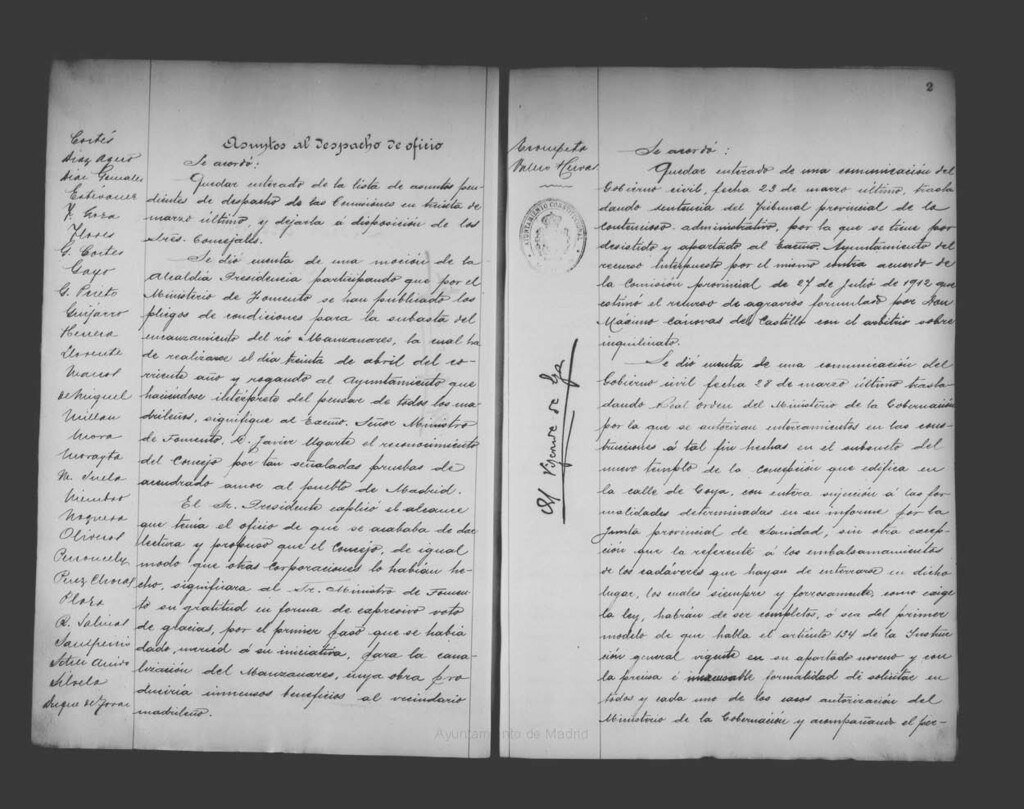 Cortés
Diaz Agero
Diaz Gonzalez
Estévanez
F. Loza
Flores
G. Cortes
Gayo
G. Prieto
Guijarro
Herrera
Llorente
Marcos
de Miguel
Millan
Mora
Morayta
N. Tirela
Niembro
Noguera
Oliveros
Peironcely
Perez Chozas
Plaza
R. Salinas
Silvela
Asuntos al despacho de oficio
Se acordó:
Quedar enterado de la lista de asuntos pen-
dientes de despacho de las Comisiones en treinta de
marzo último, y dejarla á disposición de los
Sres. Concejales.
Se dió cuenta de una moción de la
Alcaldía Presidencia participando que por el
Ministerio de Fomento se han publicado los
pliegos de condiciones para la subasta del
encauzamiento del río Manzanares, la cual ha
de realizarse el día treinta de abril del co-
rriente año y rogando al Ayuntamiento que
haciéndose intérprete del pensar de todos los ma-
drileños, signifique al Excmo. Señor Ministro
de Fomento, D. Javier Ugarte el reconocimiento
del Concejo por tan señaladas pruebas de
acendrado amor al pueblo de Madrid.
El Sr. Presidente explicó el alcance
que tenía el oficio de que se acababa de dar
lectura y propuso que el Concejo, de igual
modo que otras Corporaciones lo habían he-
cho, significara al Sr. Ministro de Fomen-
to su gratitud en forma de expresivo voto
de gracias, por el primer paso que se había
dado, merced á su iniciativa, para la cana-
lización del Manzanares, cuya obra pro
duciría inmensos beneficios al vecindario
madrileño.
2
Trompeta
AYUNTAMIENTO CONSTITUCIONAL
Se acordó:
Quedar enterado de una comunicación del
Gobierno civil, fecha 23 de marzo último, trasla-
dando sentencia del Tribunal provincial de lo
contencioso-administrativo, por la que se tiene por
desistido y apartado al Excmo. Ayuntamiento del
recurso interpuesto por el mismo contra acuerdo de
la Comisión provincial de 27 de julio de 1912 que
estimó el recurso de agravios formulado por Don
Máximo Cánovas del Castillo con el arbitrio sobre
inquilinato.
Se dió cuenta de una comunicación del
Gobierno civil fecha 28 de marzo último trasla-
dando Real orden del Ministerio de la Gobernación
por la que se autorizan enterramientos en las cons-
trucciones á tal fin hechas en el subsuelo del
nuevo templo de la Concepción que edifica en
la calle de Goya, con entera sujeción á las for-
malidades determinadas en su informe por la
Junta provincial de Sanidad, sin otra excep-
ción que la referente á los embalsamamientos
de los cadáveres que hayan de enterrarse en dicho
lugar, los cuales siempre y forzosamente, como exige
la ley, habrán de ser completos, ó sea del primer
modelo de que habla el artículo 134 de la Instruc-
ción general vigente en su apartado noveno y con
la precisa é inexcusable formalidad de solicitar en
todos y cada uno de los casos autorización del
Ministerio de la Gobernación y acompañando el per-
Ayuntamiento de Madrid